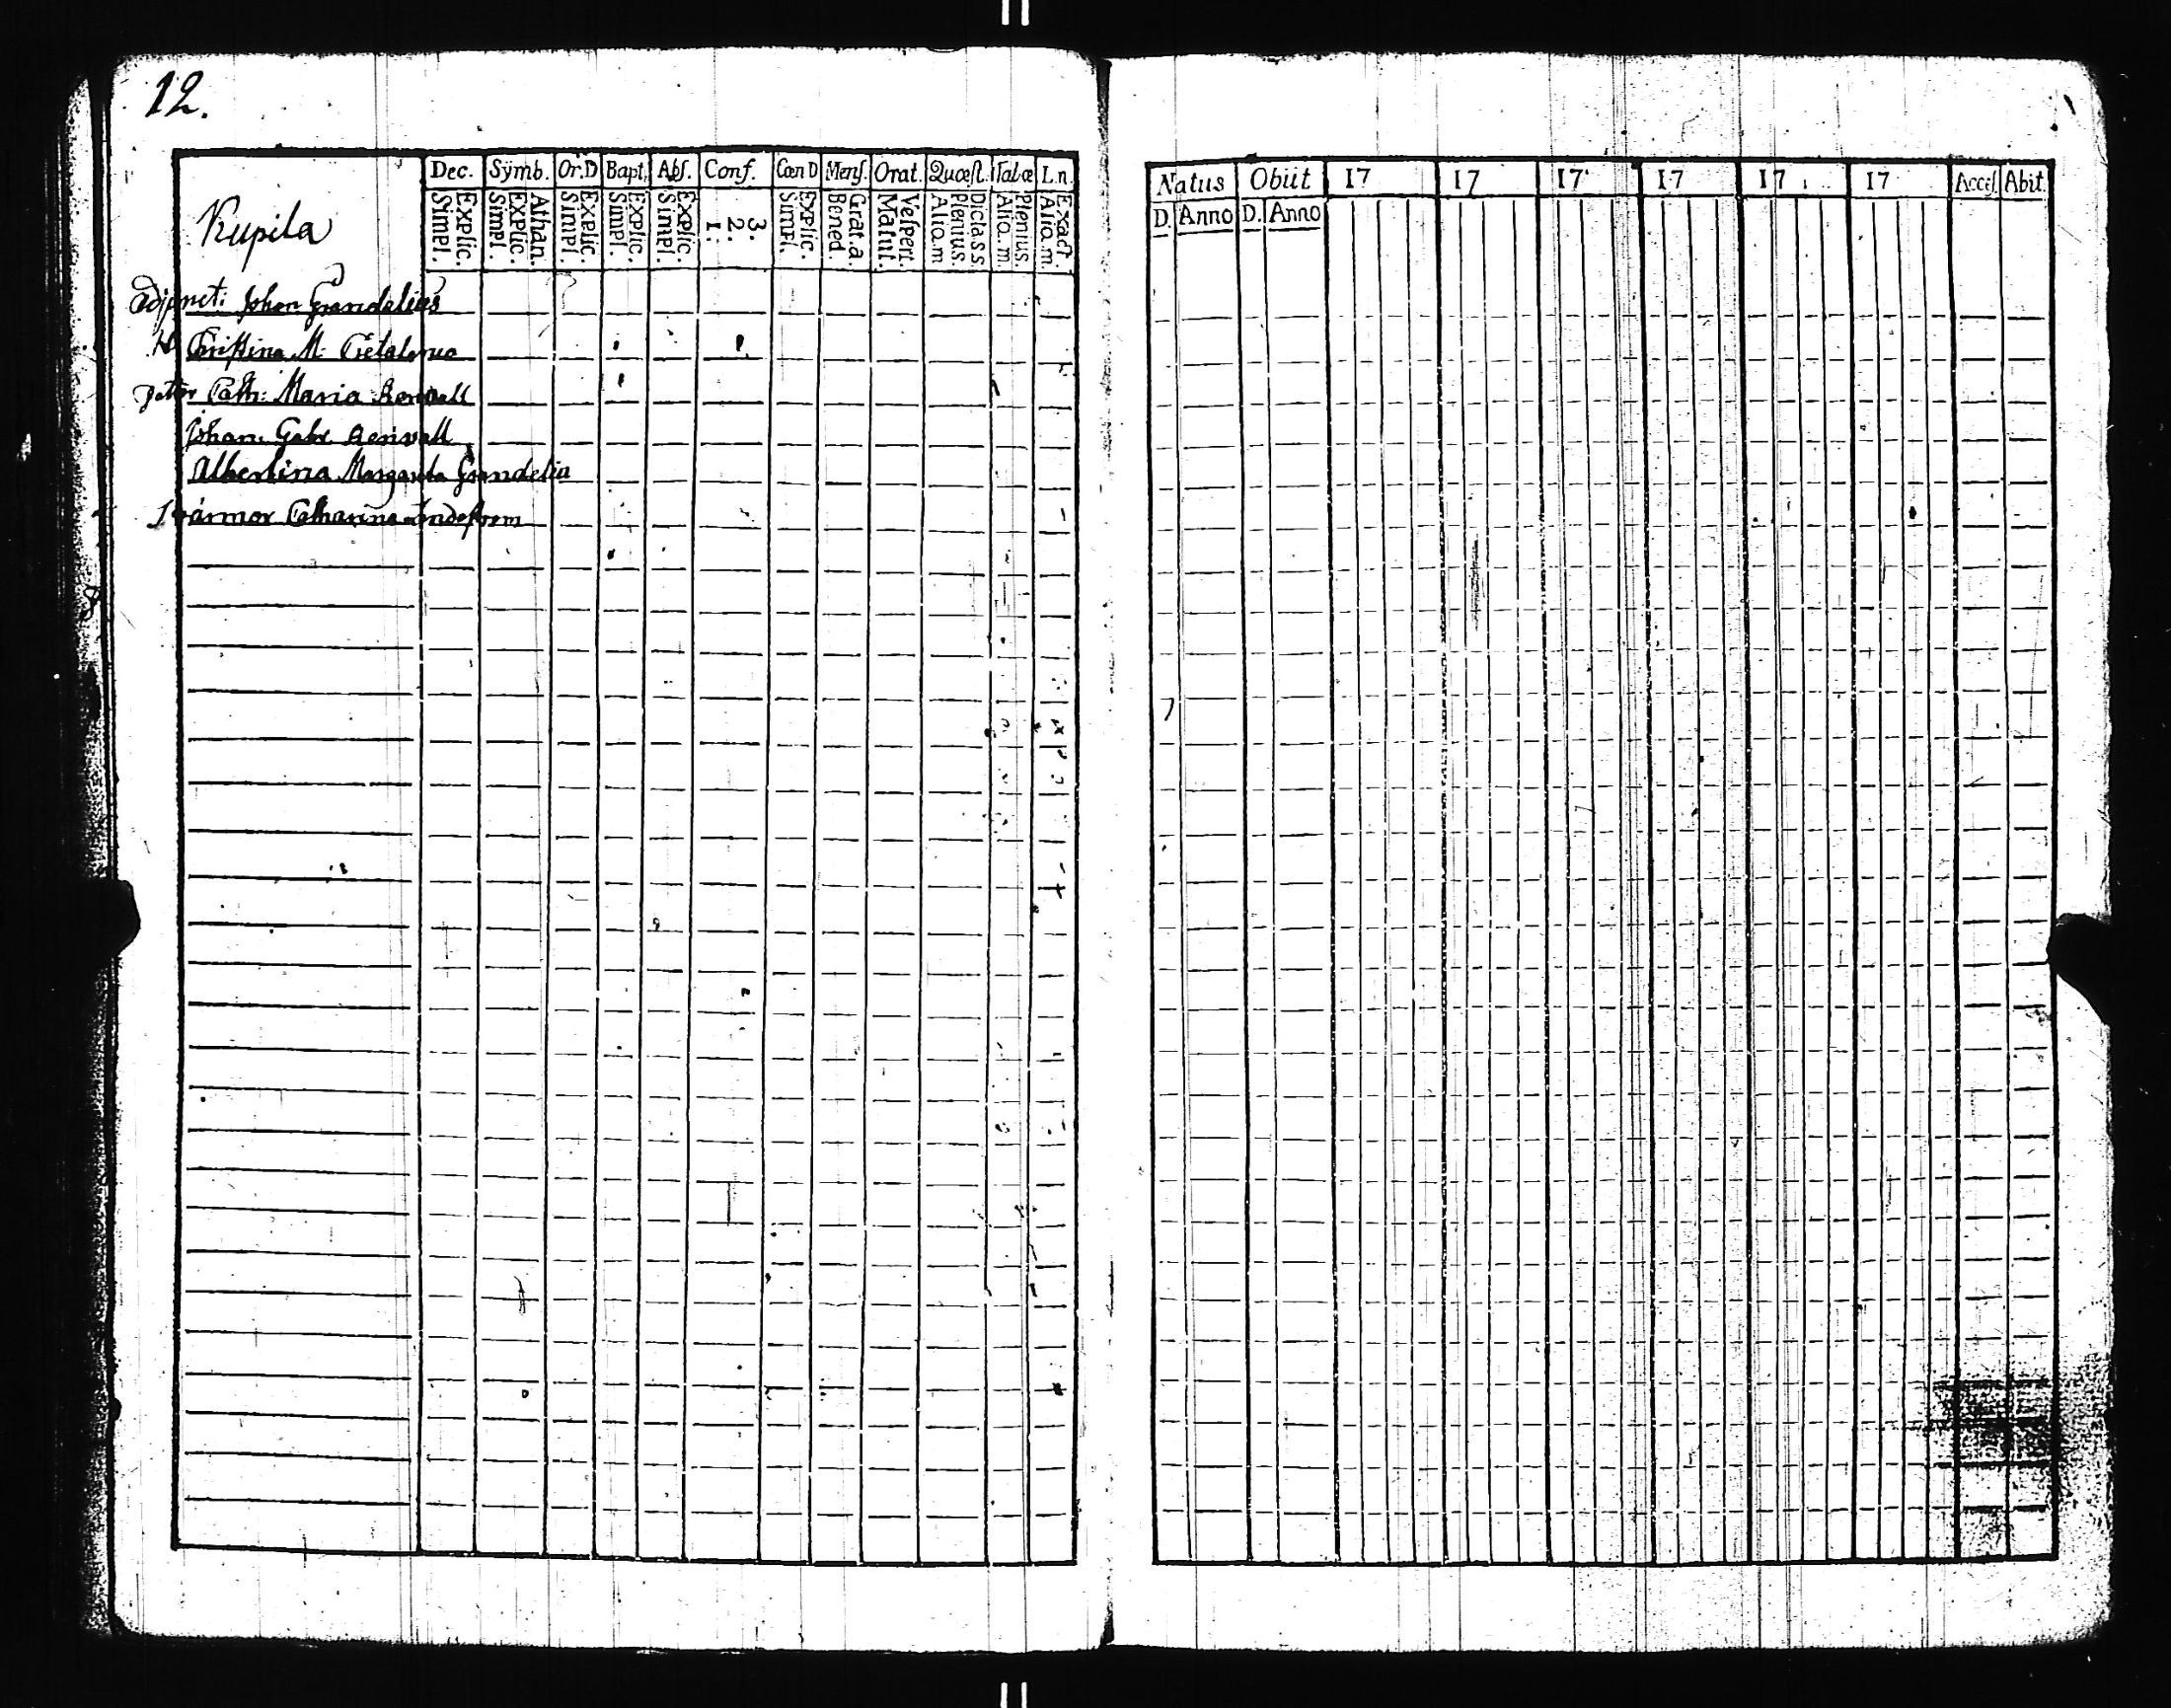 12.
Dec. Symb. Or.D Bapt. Abſ. Conf. Cœn D Menſ. Orat. Quœſt. Tabœ L.n.
Explic. Simpl. Athan. Explic. Simpl. Explic. Simpl. Explic. Simpl. Explic. Simpl. 3. 2. 1. Explic. Simpl. Grat.a. Bened. Veſpert. Matut. Dicta.s.s. Plenius. Alio.m Plenius. Alio.m. Exact. Alio.m.
Kupila
Adjunct: Johan Grandelius
H Christina M:
Cath: Maria Renvall
Johan Gabr Renvall
Albertina Margareta Grandelia
Catharina Lindestrom
Natus Obiit 17 17 17 17 17 17 Acceſ. Abit.
D. Anno D. Anno